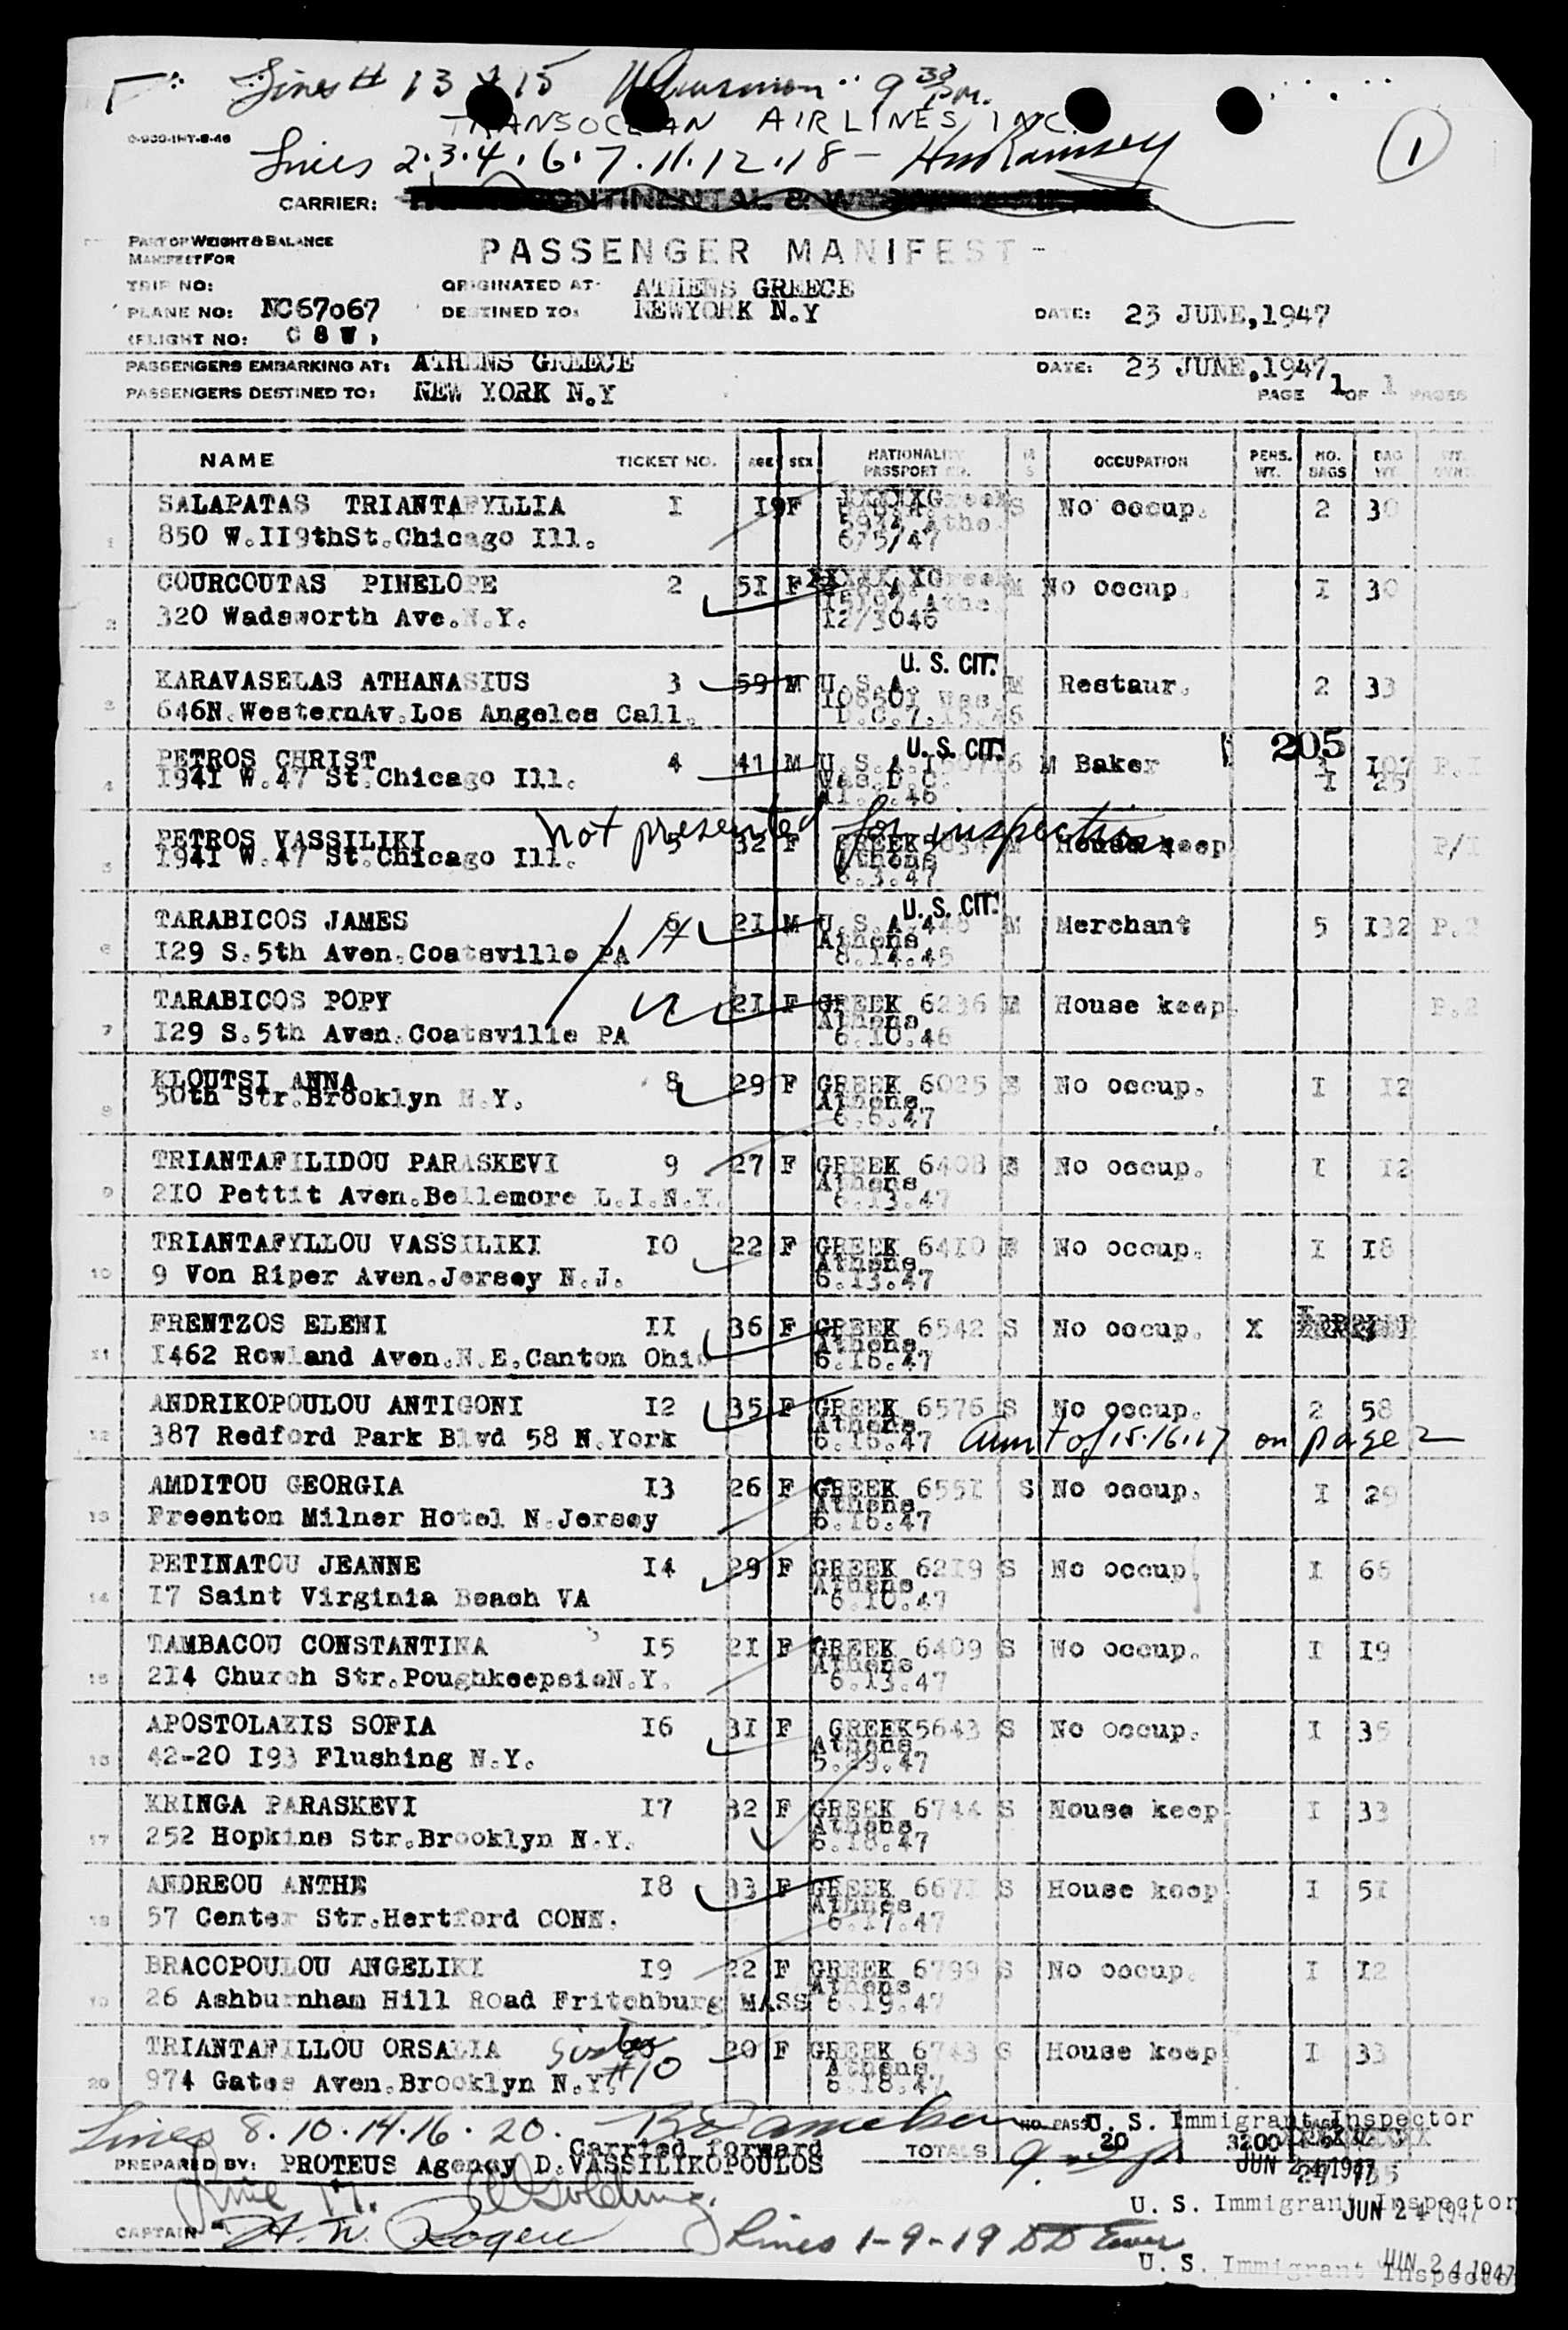 Lines # 13 & 15 9 30 P.M.
TRANSOCEAN AIRLINES, INC.
0-900-INT-8-46
Lines 2.3.4.6.7.11.12.18 - HW Ramsey
1
CARRIER: CONTINENTAL & WE
PART OF WEIGHT & BALANCE
MANIFEST FOR
PASSENGER MANIFEST
TRIP NO: ORIGINATED AT: ATHENS GREECE
PLANE NO: NC67067 DESTINED TO: NEWYORK N.Y DATE: 23 JUNE,1947
(FLIGHT NO: C 8 W )
PASSENGERS EMBARKING AT: ATHENS GREECE DATE: 23 JUNE,1947
PASSENGERS DESTINED TO: NEW YORK N.Y PAGE 1 OF 1 PAGES
NAME TICKET NO. AGE SEX NATIONALITY PASSPORT NO. M S OCCUPATION PERS. WT. NO. BAGS BAG WT.
1 SALAPATAS TRIANTAFYLLIA I I9 F Greek S No occup. 2 30
850 W.II9thSt.Chicago Ill. Athe.
6/5/47
2 COURCOUTAS PINELOPE 2 5I F Greek M No occup. I 30
320 Wadsworth Ave.N.Y. Athe.
12/3046
U. S. CIT.
3 KARAVASELAS ATHANASIUS 3 59 M U.S.A. M Restaur. 2 33
646N.WesternAv.Los Angeles Call.
U. S. CIT. 205
4 PETROS CHRIST 4 41 M U.S.A. M Baker
I94I W.47 St.Chicago Ill. Was.D.C. I 25
not presented for inspection
5 PETROS VASSILIKI 5 32 F GREEK M House keep P/I
I94I W.47 St.Chicago Ill. Athens
6.3.47
U. S. CIT.
6 TARABICOS JAMES 6 2I M U.S.A. M Merchant 5 I32 P.2
I29 S.5th Aven.Coatsville PA Athens
8.14.45
7 TARABICOS POPY 2I F GREEK 6236 M House keep. P.2
I29 S.5th Aven.Coatsville PA Athens
6.10.46
8 KLOUTSI ANNA 8 29 F GREEK 6025 No occup. I I2
50th Str.Brooklyn N.Y. Athens
6.6.47
9 TRIANTAFILIDOU PARASKEVI 9 27 F GREEK 6408 No occup. I I2
2I0 Pettit Aven.Bellemore L.I.N.Y. Athens
6.13.47
10 TRIANTAFYLLOU VASSILIKI I0 22 F GREEK 64I0 No occup. I I8
9 Von Riper Aven.Jersey N.J. Athens
6.13.47
11 FRENTZOS ELENI II 36 F GREEK 6542 S No occup. X
I462 Rowland Aven.N.E.Canton Ohio Athens
6.16.47
12 ANDRIKOPOULOU ANTIGONI I2 35 F GREEK 6576 S No occup. 2 58
387 Redford Park Blvd 58 N.York Athens
6.16.47 Aunt of 15.16.17 on page 2
13 AMDITOU GEORGIA I3 26 F GREEK 655I S No occup. I 29
Freenton Milner Hotel N.Jersey Athens
6.16.47
14 PETINATOU JEANNE I4 29 F GREEK 62I9 S No occup. I 66
I7 Saint Virginia Beach VA Athens
6.10.47
15 TAMBACOU CONSTANTINA I5 2I F GREEK 6409 S No occup. I I9
2I4 Church Str.PoughkeepsieN.Y. Athens
6.13.47
16 APOSTOLAKIS SOFIA I6 3I F GREEK5643 S No occup. I 35
42-20 I93 Flushing N.Y. Athens
5.29.47
17 KRINGA PARASKEVI I7 32 F GREEK 6744 S House keep. I 33
252 Hopkins Str.Brooklyn N.Y. Athens
6.18.47
18 ANDREOU ANTHE I8 33 F GREEK 667I S House keep. I 5I
57 Center Str.Hertford CONN. Athnes
6.17.47
19 BRACOPOULOU ANGELIKI I9 22 F GREEK 6799 S No occup. I I2
26 Ashburnham Hill Road Fritchburg MASS Athens
6.19.47
20 TRIANTAFILLOU ORSALIA 20 F GREEK 6743 S House keep. I 33
974 Gates Aven.Brooklyn N.Y. Athens
Sister #10 6.18.47
Lines 8.10.14.16.20. NO. PASS. U. S. Immigrant Inspector
Carried forward TOTALS 20 3200
PREPARED BY: PROTEUS Agency D.VASSILIKOPOULOS JUN 24 1947
Line 17. Golding.
U. S. Immigrant Inspector
JUN 24 1947
CAPTAIN H. W. Lines 1-9-19
U. S. Immigrant Inspector
JUN 24 1947